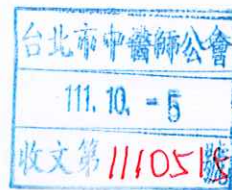 台北市中醫師公會
111.10.-5
收文第1110515號